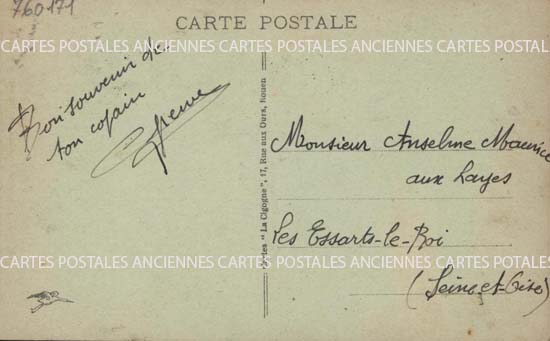 760171
CARTE POSTALE
CARTES POSTALES ANCIENNES CARTES POSTALES ANCIENNES CARTES POSTALES
Bon souvenir de
ton copain
"La Cigogne", 17, Rue aux Ours, Rouen
Monsieur Anselme Maurice
aux Layes
Les Essarts-le-Roi
(Seine-et-Oise)
CARTES POSTALES ANCIENNES CARTES POSTALES ANCIENNES CARTES POSTALES